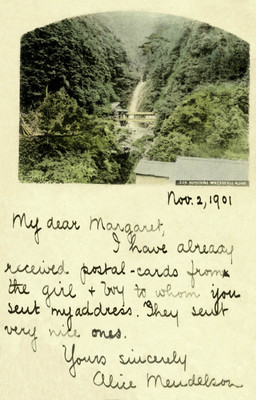 NUNOBIKI WATERFALL KOBE
Nov. 2, 1901
My dear Margaret,
I have already
received postal-cards from
the girl + boy to whom you
sent my address. They sent
very nice ones.
Yours sincerely
Alice Mendelson